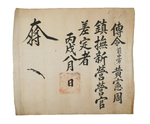 傳令 前主事 黃憲周
鎮撫新營營官
差定者
丙戌八月 日